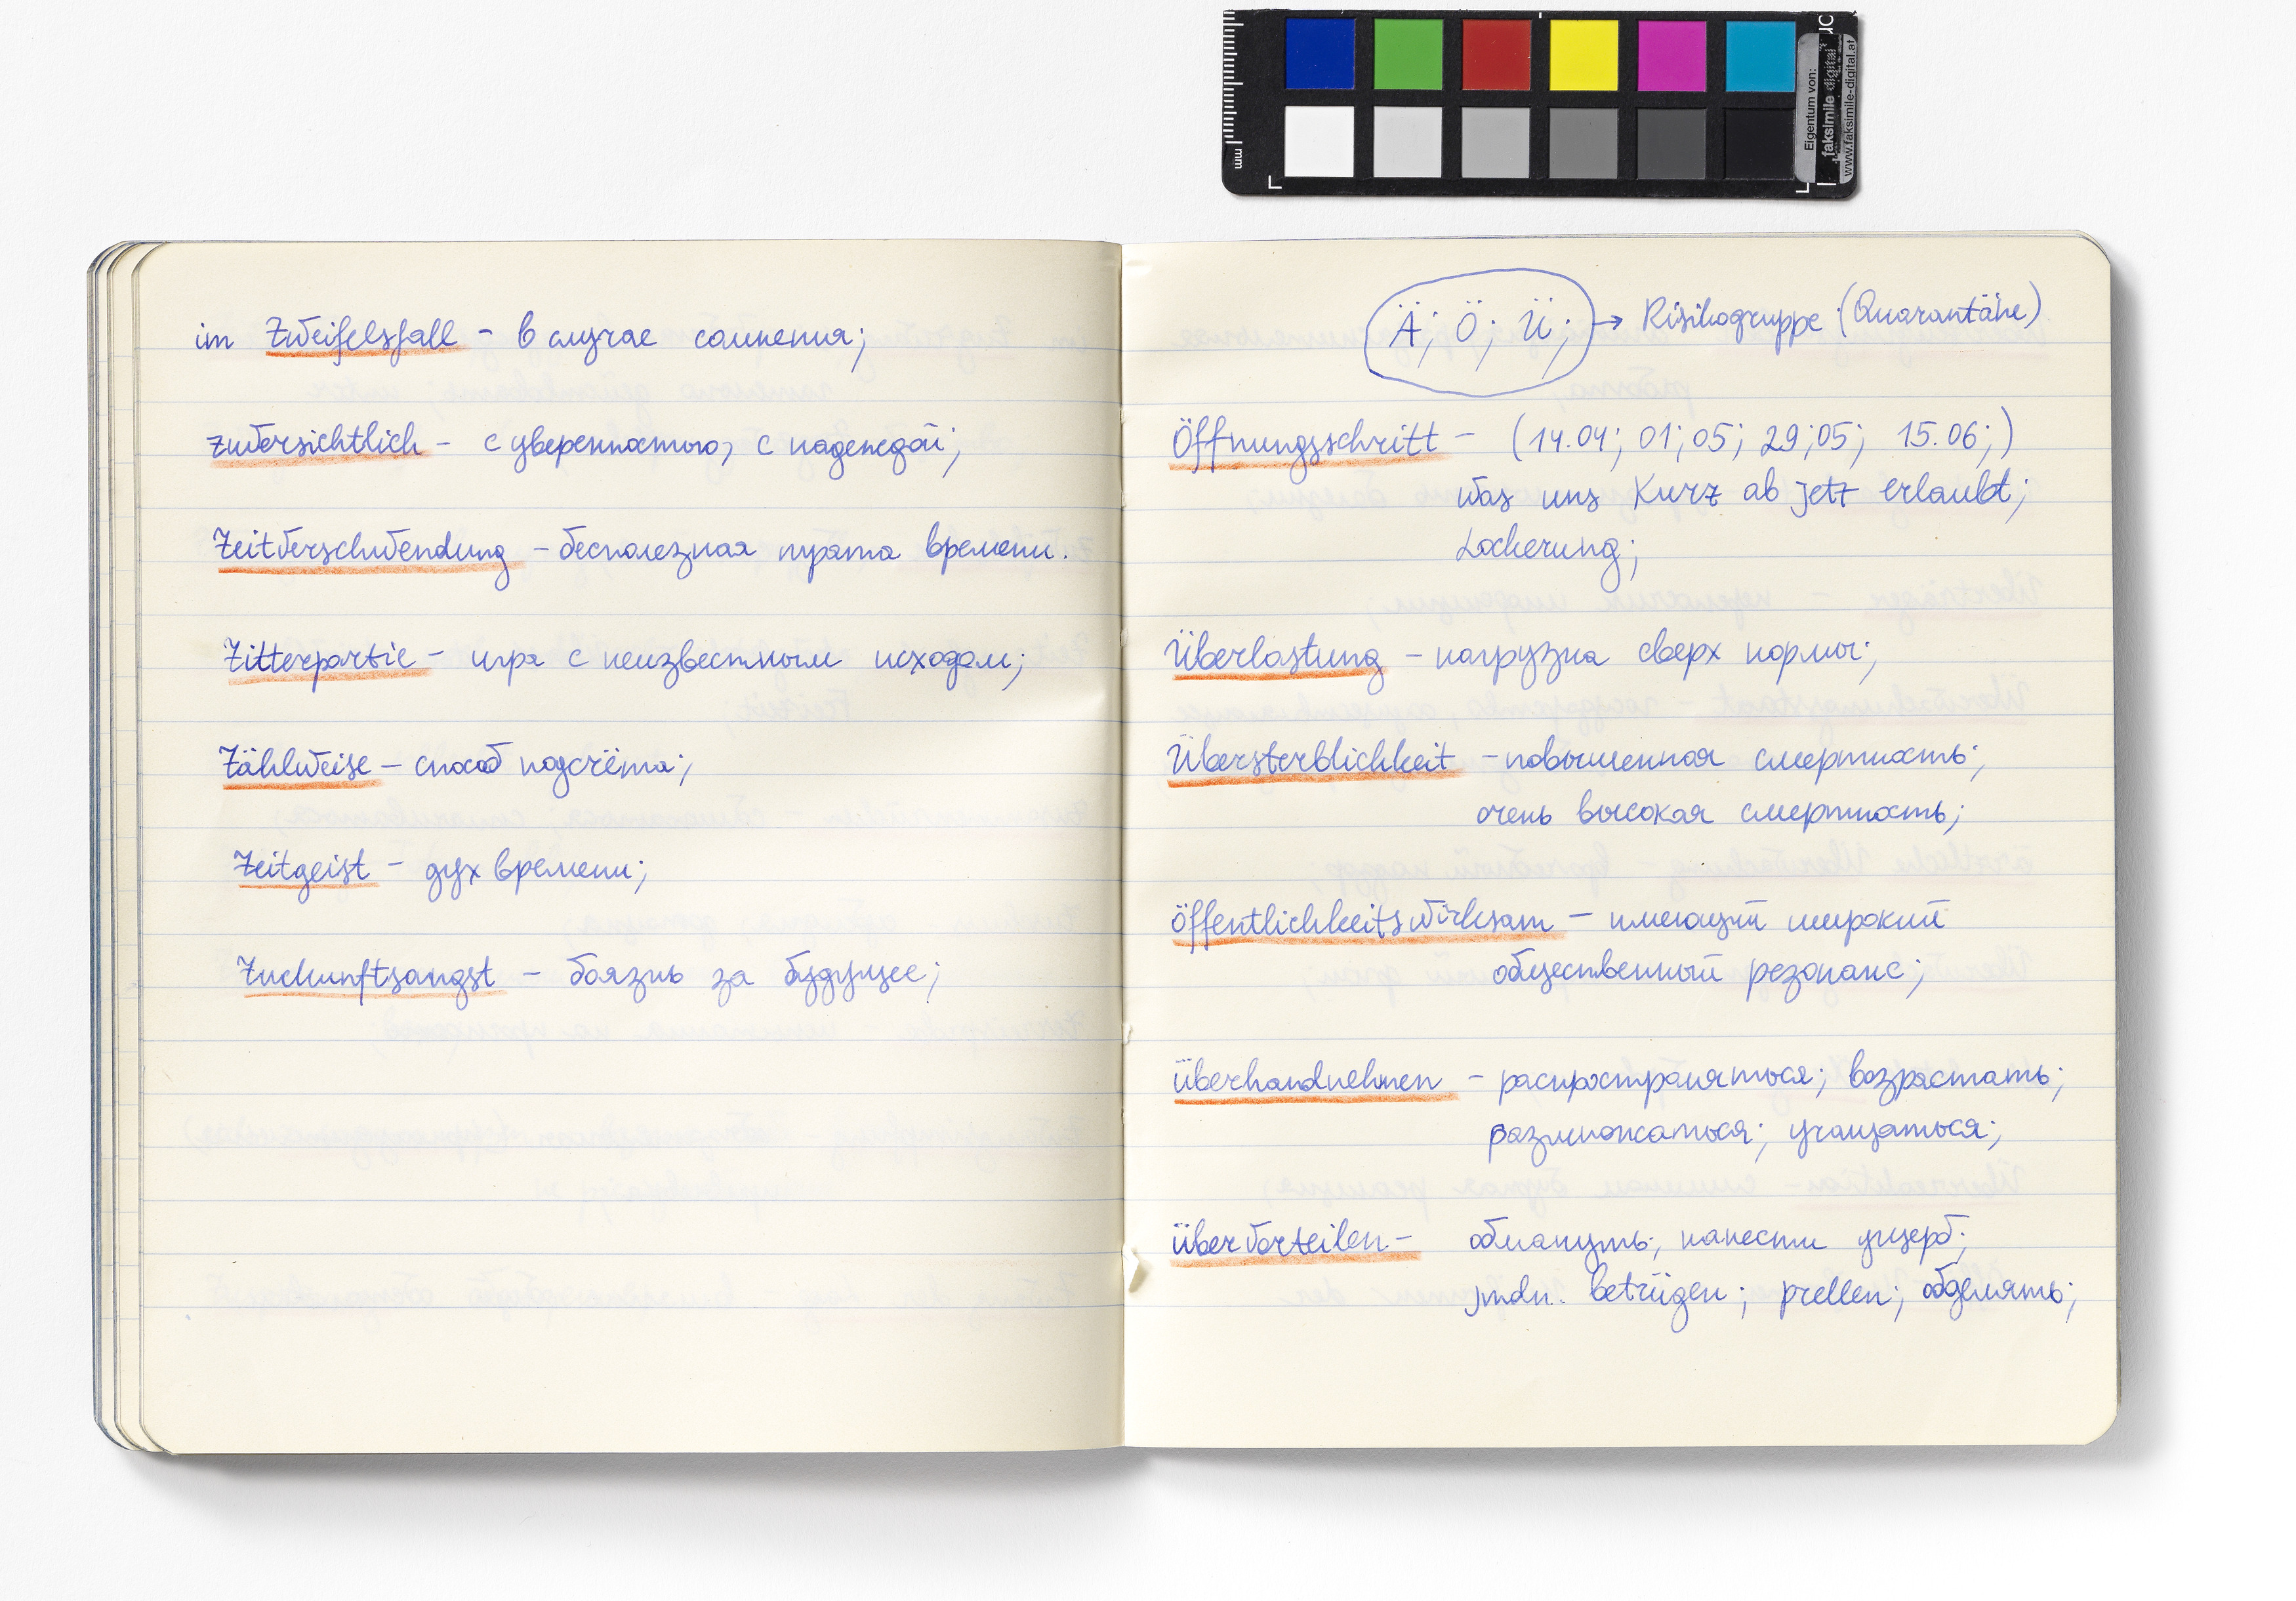 im Zweifelsfall – в случае сомнения;
zuversichtlich – с уверенностью, с надеждой;
Zeitverschwendung – бесполезная трата времени.
Zitterpartie – игра с неизвестным исходом;
Zählweise – способ подсчёта;
Zeitgeist – дух времени;
Zuckunftsangst – боязнь за будущее;
Ä; Ö; Ü; → Risikogruppe (Quarantähe)
Öffnungsschritt – (14.04; 01;05; 29;05; 15.06;)
was uns Kurz ab jetz erlaubt;
Lockerung;
Überlastung – нагрузка сверх нормы;
Übersterblichkeit – повышенная смертность;
очень высокая смертность;
öffentlichkeitswirksam – имеющий широкий
общественный резонанс;
überhandnehmen – распространяться; возрастать;
размножаться; учащаться;
übervorteilen – обмануть; нанести ущерб;
jmdn. betrügen; prellen; обделять;
mm
Eigentum von:
faksimile digital
www.faksimile-digital.at